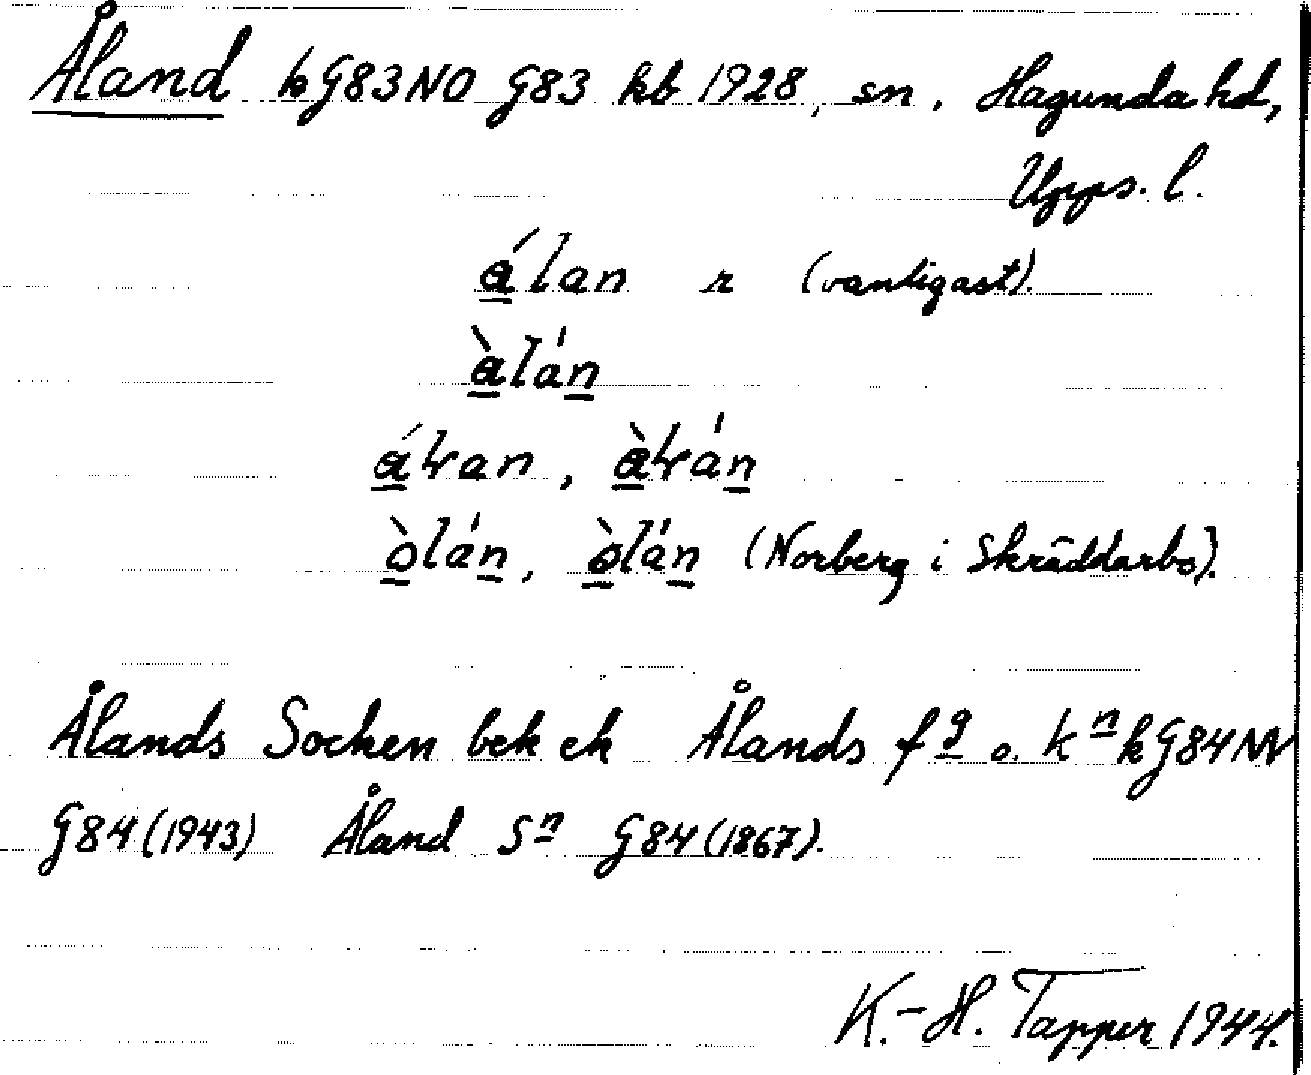 Åland kG83NO G83 kb 1928, sn. Hagunda hd,
Upps. l.
á̲lan r (vanligast).
à̲lán̲
á̲ƚran, à̲ƚrán̲
ò̲lán̲, ò̲lán̲ (Norberg i Skräddarbo).
Ålands Socken bek ek Ålands fg o. kn kG84NV
G84 (1943) Åland Sn G84 (1867).
K.-H. Tapper 1944.